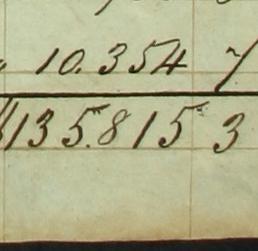 10.354 7
135.815 3